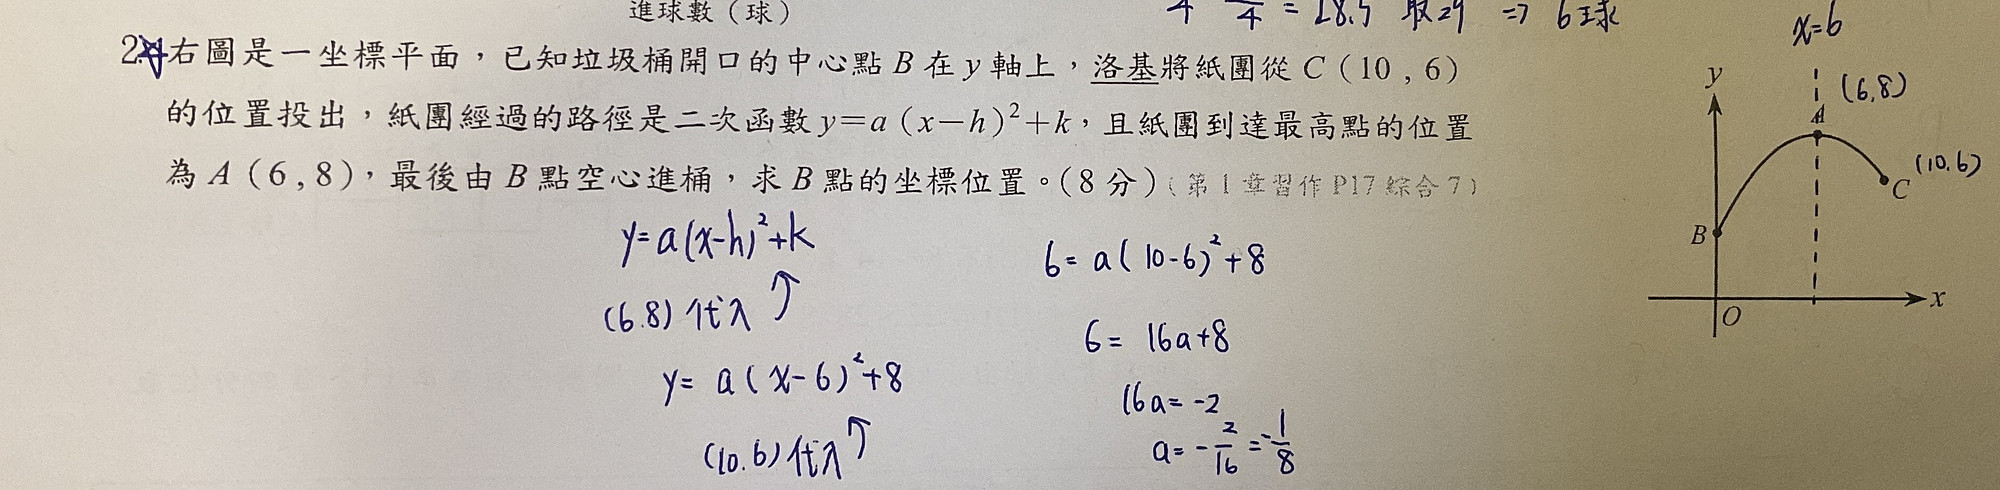 進球數(球)
= 28.5 取29 => 6球
2.右圖是一坐標平面,已知垃圾桶開口的中心點 B 在 y 軸上,洛基將紙團從 C(10,6)
的位置投出,紙團經過的路徑是二次函數 y=a(x-h)²+k,且紙團到達最高點的位置
為 A(6,8),最後由 B 點空心進桶,求 B 點的坐標位置。(8分)(第1章習作 P17 綜合7)
y=a(x-h)²+k
(6.8) 代入 ↗
y= a(x-6)²+8
(10.6) 代入 ↗
6= a(10-6)²+8
6= 16a+8
16a= -2
a= -2/16 = -1/8
x=6
y
(6,8)
A
(10.6)
C
B
O
x